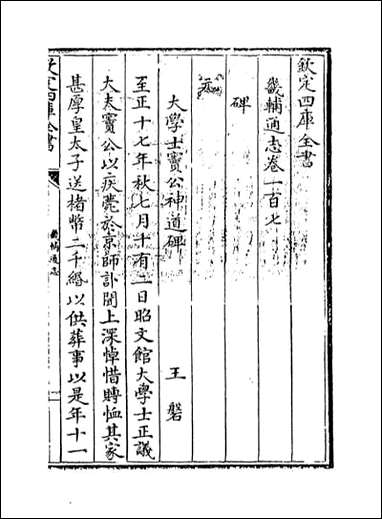 欽定四庫全書
畿輔通志卷一百七
碑
元
大學士竇公神道碑
王磐
至正十七年秋七月十有二日昭文館大學士正議
大夫竇公以疾薨於京師訃聞上深悼惜賻恤其家
甚厚皇太子送楮幣二千緡以供葬事以是年十一
欽定四庫全書
畿輔通志